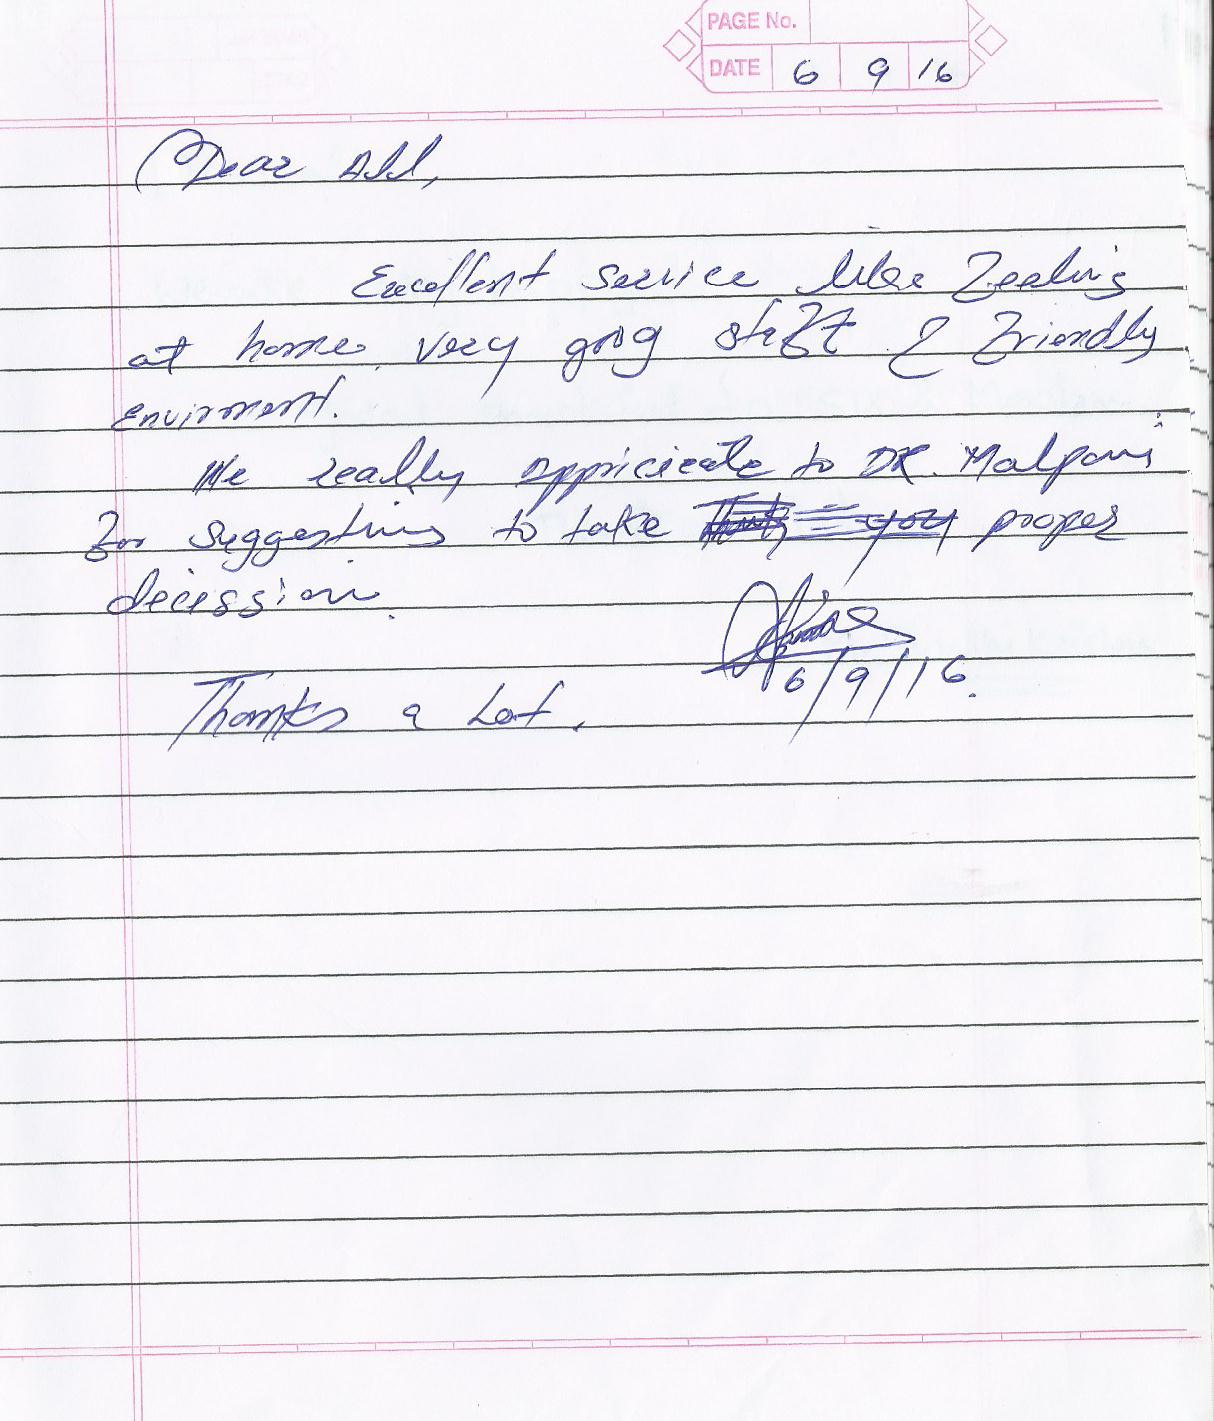 PAGE No.
DATE 6 9 16
Dear All,
Excellent service like feeling
at home, very good staff & friendly
Envirment.
We really appriciecate to DR. Malpani
for suggesting to take proper
decission.
6/9/16.
Thanks a Lot.